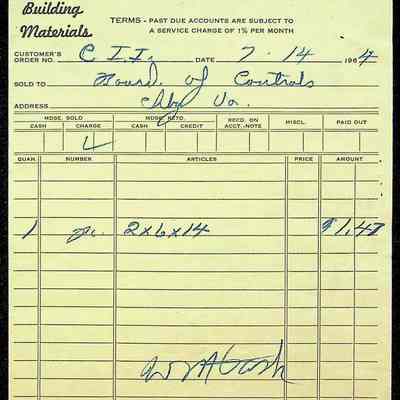 Building
Materials
TERMS - PAST DUE ACCOUNTS ARE SUBJECT TO
A SERVICE CHARGE OF 1½% PER MONTH
CUSTOMER'S
ORDER NO. C I I. DATE 7-14 1964
SOLD TO Board of Controls
ADDRESS Va.
MDSE. SOLD MDSE. RETD. REC'D. ON ACCT.-NOTE MISCL. PAID OUT
CASH CHARGE CASH CREDIT
QUAN. NUMBER ARTICLES PRICE AMOUNT
1 pc. 2x6x14 $1.47